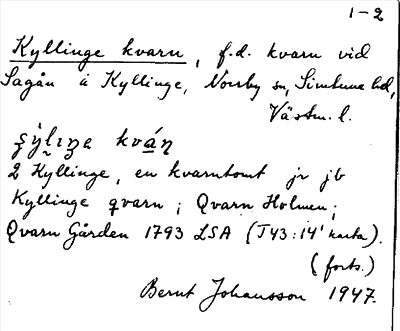 1-2
Kyllinge kvarn, f.d. kvarn vid
Sagån i Kyllinge, Norrby sn, Simtuna hd,
Västm. l.
kván
2 Kyllinge, en kvarntomt jr jb
Kyllinge qvarn; Qvarn Holmen;
Qvarn Gården 1793 LSA (T43:14' karta).
(forts.)
Bernt Johansson 1947.